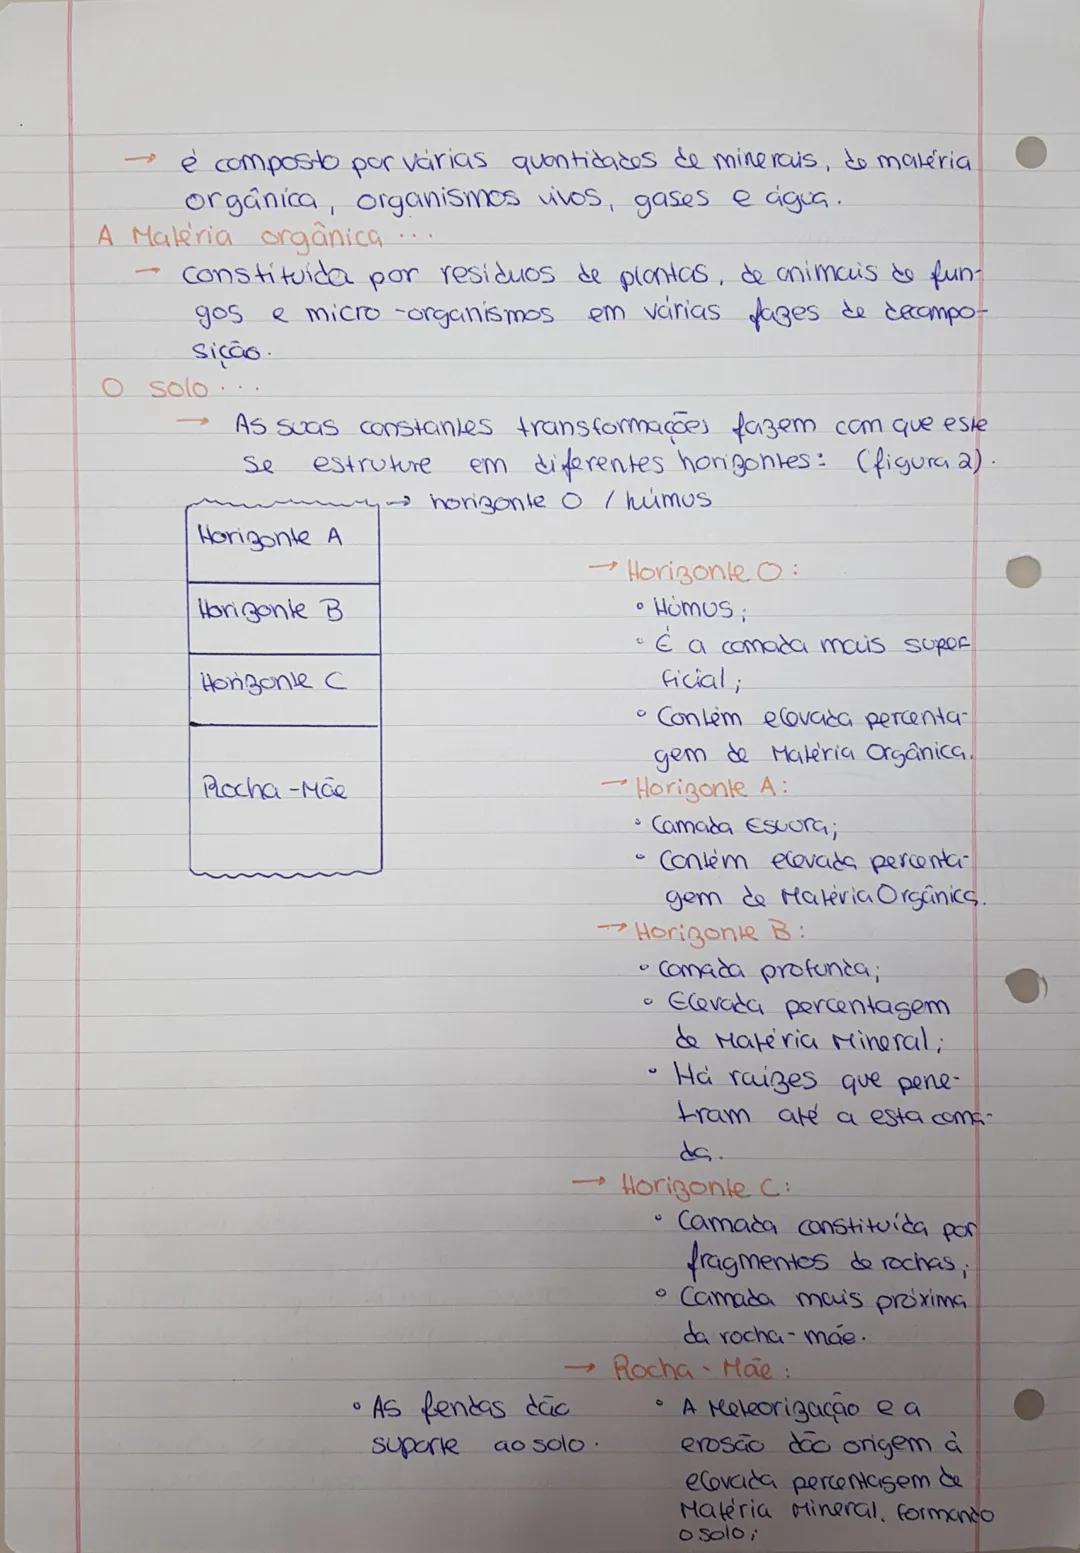 → é composto por várias quantidades de minerais, de matéria
orgânica, organismos vivos, gases e água.
A Matéria orgânica ...
→ constituída por resíduos de plantas, de animais de fun-
gos e micro-organismos em várias fazes de decompo-
sição.
O solo ...
→ As suas constantes transformações fazem com que este
se estruture em diferentes horizontes: (figura 2).
→ horizonte O / húmus
Horizonte A
Horizonte B
Horizonte C
Rocha-Mãe
→ Horizonte O:
• Húmus;
• É a camada mais super
ficial;
• Contém elevada percenta-
gem de Matéria Orgânica.
→ Horizonte A:
• Camada Escura;
• Contém elevada percenta-
gem de Matéria Orgânica.
→ Horizonte B:
• Camada profunda;
• Elevada percentagem
de Matéria Mineral;
• Há raízes que pene-
tram até a esta cama-
da.
→ Horizonte C:
• Camada constituída por
fragmentos de rochas;
• Camada mais próxima
da rocha-mãe.
→ Rocha-Mãe:
• A Meteorização e a
erosão dão origem à
elevada percentagem de
Matéria Mineral, formando
o solo;
• As fendas dão
suporte ao solo.